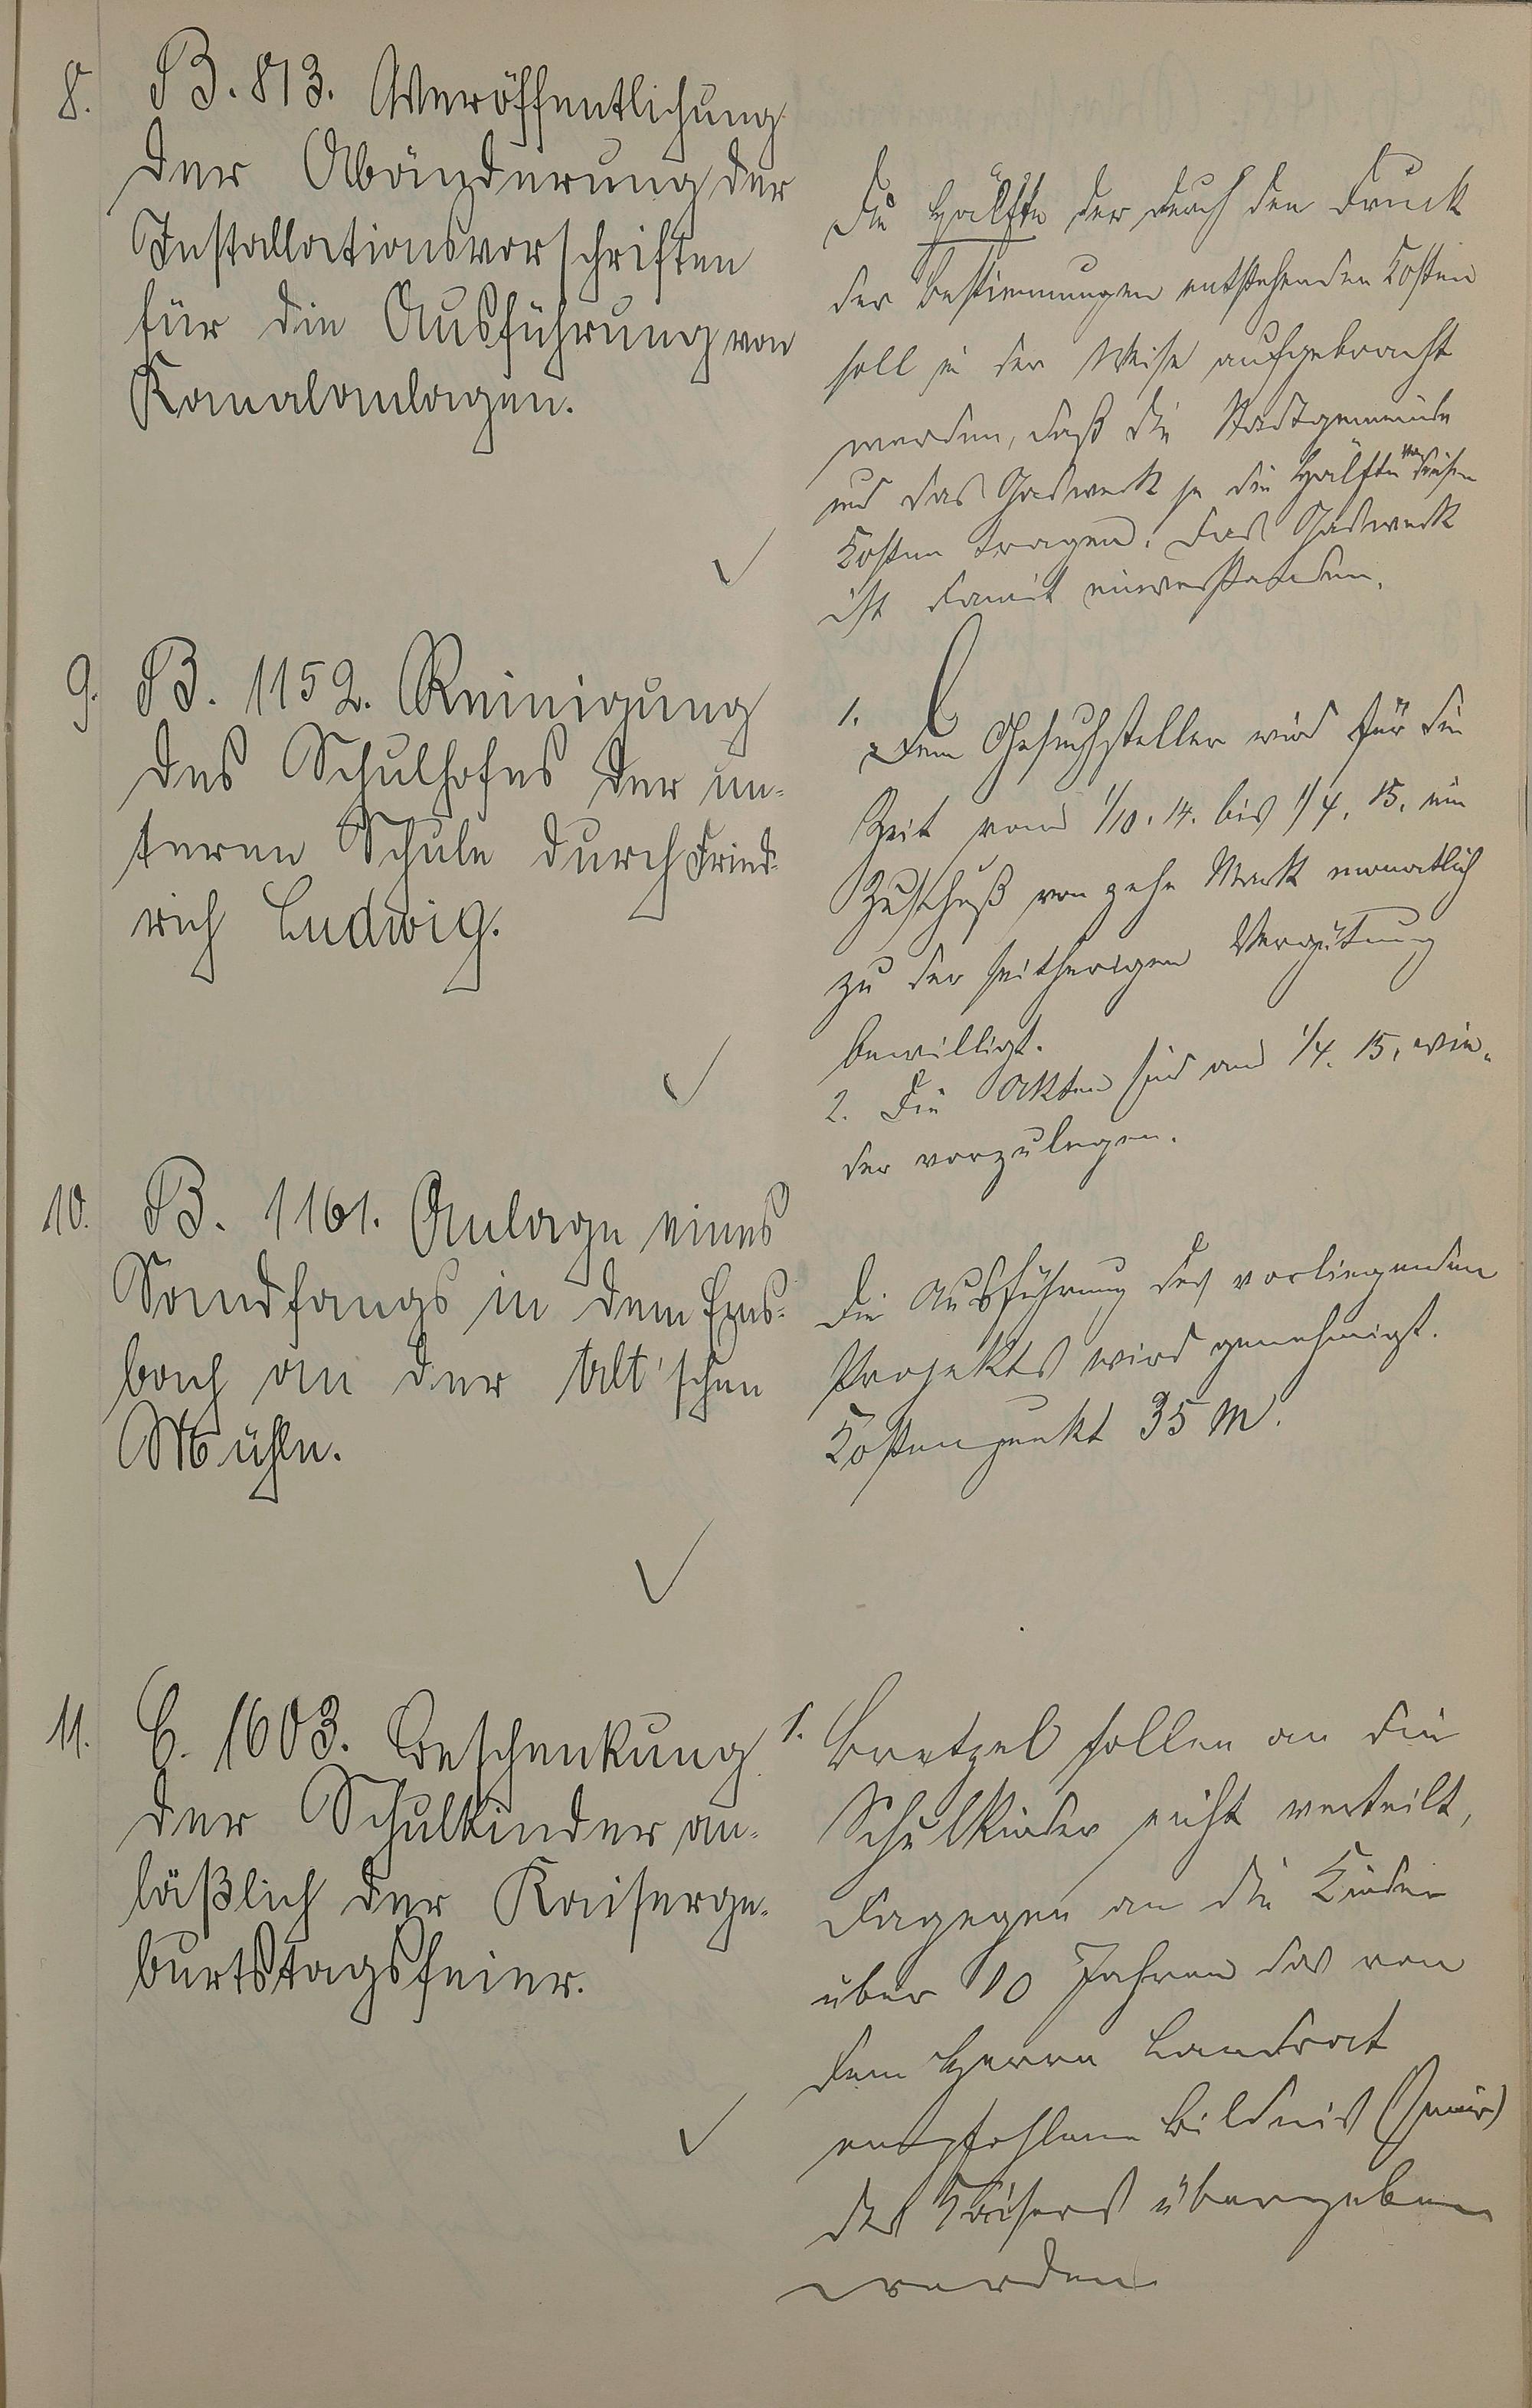 8. B. 813. Veröffentlichung
der Abänderung der
Installationsvorschriften
für die Ausführung von
Kanalanlagen.
Die Hälfte der durch den Druck
der Bestimmungen entstehenden Kosten
soll in der Weise aufgebracht
werden, daß die Stadtgemeinde
und das Gaswerk je die Hälfte von diesen
Kosten tragen. Das Gaswerk
ist damit einverstanden.
9. B. 1152. Reinigung
des Schulhofes der un-
teren Schule durch Fried-
rich Ludwig.
1. Dem Gesuchsteller wird für die
Zeit vom 1/10. 14. bis 1/4. 15. ein
Zuschuß von zehn Mark monatlich
zu der seitherigen Vergütung
bewilligt.
2. Die Akten sind am 1/4. 15. wie-
der vorzulegen.
10. B. 1161. Anlage eines
Sandfangs in dem Ems-
bach an der Alt'schen
Mühle.
Die Ausführung des vorliegenden
Projekts wird genehmigt.
Kostenpunkt 35 M.
11. C. 1603. Beschenkung
der Schulkinder an-
läßlich der Kaiserge-
burtstagsfeier.
1. Bretzel sollen an die
Schulkinder nicht verteilt,
dagegen an die Kinder
über 10 Jahren das von
dem Herrn Landrat
empfohlene Bildnis
des Kaisers übergeben
werden